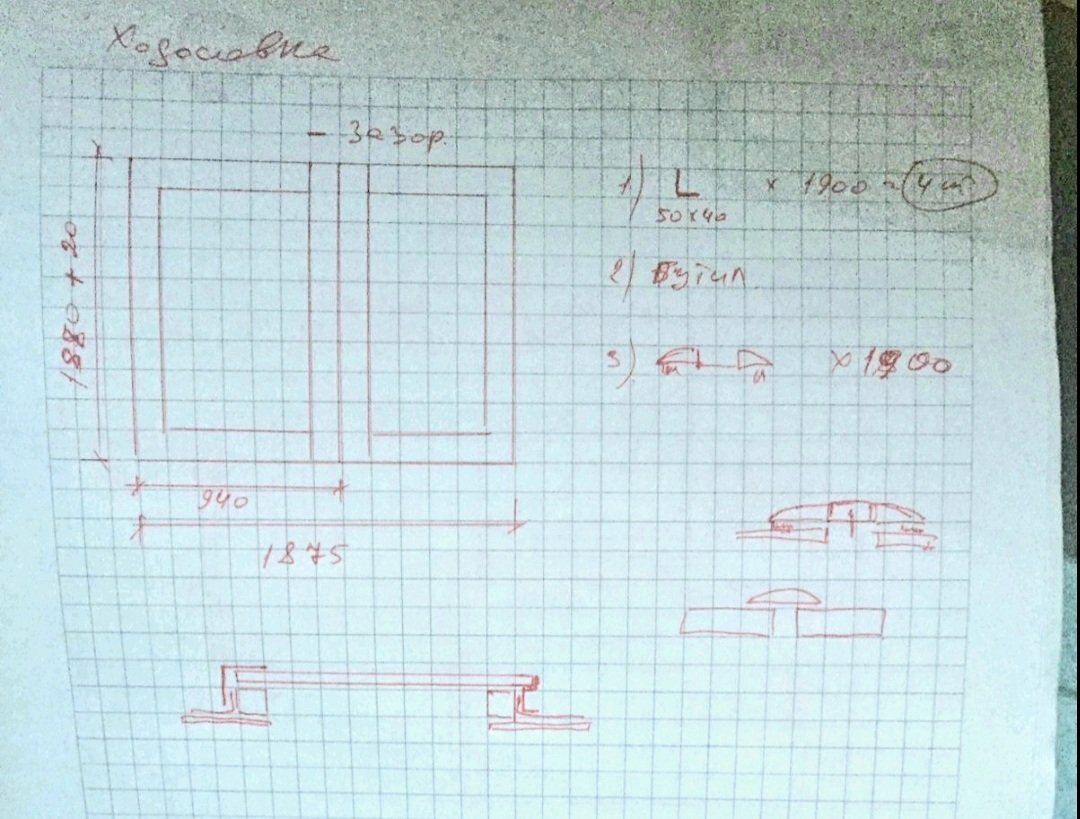 Ходосовка
- Зазор.
1) L х 1900 - 4 шт
50х40
2) Бутил
3) х 1900
1880 + 20
940
1875